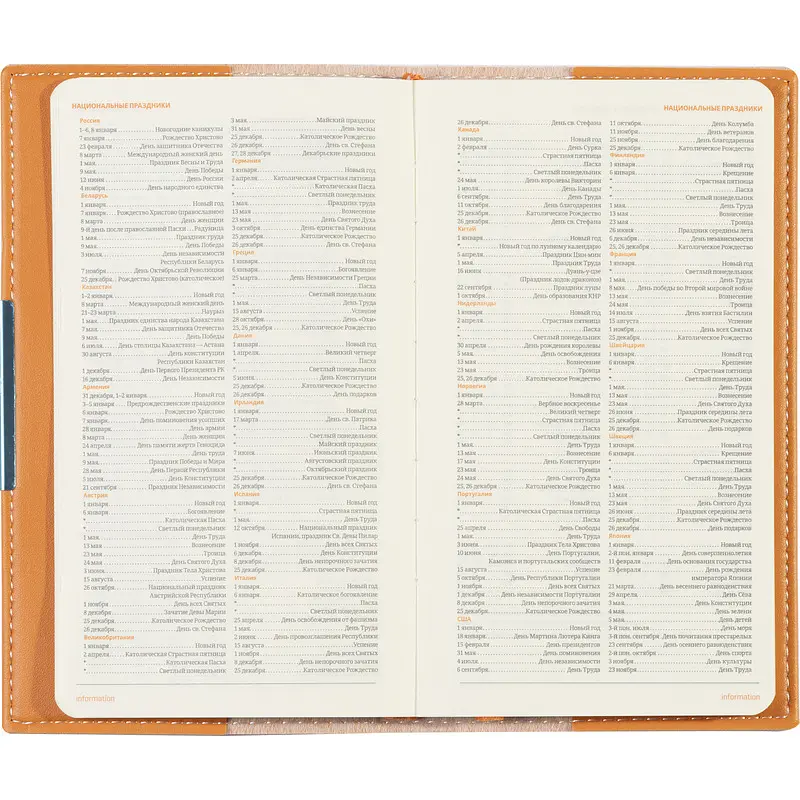 НАЦИОНАЛЬНЫЕ ПРАЗДНИКИ
Россия
1–6, 8 января Новогодние каникулы
7 января Рождество Христово
23 февраля День защитника Отечества
8 марта Международный женский день
1 мая Праздник Весны и Труда
9 мая День Победы
12 июня День России
4 ноября День народного единства
Беларусь
1 января Новый год
7 января Рождество Христово (православное)
8 марта День женщин
9-й день после православной Пасхи Радуница
1 мая Праздник труда
9 мая День Победы
3 июля День независимости
Республики Беларусь
7 ноября День Октябрьской Революции
25 декабря Рождество Христово (католическое)
Казахстан
1–2 января Новый год
8 марта Международный женский день
21–23 марта Наурыз
1 мая Праздник единства народа Казахстана
7 мая День защитника Отечества
9 мая День Победы
6 июля День столицы Казахстана — Астана
30 августа День конституции
Республики Казахстан
1 декабря День Первого Президента РК
16 декабря День Независимости
Армения
31 декабря, 1–2 января Новый год
3–5 января Предрождественские праздники
6 января Рождество Христово
7 января День поминовения усопших
28 января День армии
8 марта День женщин
24 апреля День памяти жертв Геноцида
1 мая День труда
9 мая Праздник Победы и Мира
28 мая День Первой Республики
5 июля День Конституции
21 сентября Праздник Независимости
Австрия
1 января Новый год
6 января Богоявление
* Католическая Пасха
* Светлый понедельник
1 мая День Труда
13 мая Вознесение
23 мая Троица
24 мая День Святого Духа
3 июня Праздник Тела Христова
15 августа Успение
26 октября Национальный праздник
Австрийской Республики
1 ноября День всех Святых
8 декабря Зачатие Девы Марии
25 декабря Католическое Рождество
26 декабря День св. Стефана
Великобритания
1 января Новый год
2 апреля Католическая Страстная пятница
* Католическая Пасха
* Светлый понедельник
3 мая Майский праздник
31 мая День весны
25 декабря Католическое Рождество
26 декабря День св. Стефана
27, 28 декабря Декабрьские праздники
Германия
1 января Новый год
2 апреля Католическая Страстная пятница
* Католическая Пасха
* Светлый понедельник
1 мая Праздник труда
13 мая Вознесение
23 мая День Святого Духа
3 октября День единства Германии
25 декабря Католическое Рождество
26 декабря День св. Стефана
Греция
1 января Новый год
6 января Богоявление
25 марта День Независимости Греции
* Пасха
* Светлый понедельник
1 мая День Труда
15 августа Успение
28 октября День «Охи»
25, 26 декабря Католическое Рождество
Дания
1 января Новый год
1 апреля Великий четверг
* Пасха
* Светлый понедельник
5 июня День Конституции
25 декабря Католическое Рождество
26 декабря День подарков
Ирландия
1 января Новый год
17 марта День св. Патрика
* Пасха
* Светлый понедельник
* Майский праздник
7 июня Июньский праздник
* Августовский праздник
* Октябрьский праздник
25 декабря Католическое Рождество
Испания
1 января Новый год
* Страстная пятница
1 мая День Труда
12 октября Национальный праздник
Испании, праздник Св. Девы Пилар
1 ноября День всех Святых
6 декабря День Конституции
8 декабря День непорочного зачатия
25 декабря Католическое Рождество
Италия
1 января Новый год
6 января Католическое богоявление
* Пасха
* Светлый понедельник
25 апреля День освобождения от фашизма
1 мая День Труда
2 июня День провозглашения Республики
15 августа Успение
1 ноября День всех Святых
8 декабря День непорочного зачатия
25 декабря Католическое Рождество
information
НАЦИОНАЛЬНЫЕ ПРАЗДНИКИ
26 декабря День св. Стефана
Канада
1 января Новый год
2 февраля День Сурка
* Страстная пятница
* Пасха
* Светлый понедельник
24 мая День королевы Виктории
1 июля День Канады
6 сентября День Труда
11 октября День благодарения
25 декабря Католическое Рождество
26 декабря День св. Стефана
Китай
1 января Новый год
* Новый год по лунному календарю
5 апреля Праздник Цин-мин
1 мая Праздник Труда
16 июня Дуань-у-цзе
(Праздник лодок-драконов)
22 сентября Праздник луны
1 октября День образования КНР
Нидерланды
1 января Новый год
2 апреля Страстная пятница
* Пасха
* Светлый понедельник
30 апреля День рождения королевы
5 мая День освобождения
13 мая Вознесение
23 мая Троица
25, 26 декабря Католическое Рождество
Норвегия
1 января Новый год
28 марта Вербное воскресенье
* Великий четверг
* Страстная пятница
* Пасха
* Светлый понедельник
1 мая День Труда
13 мая Вознесение
17 мая День Конституции
23 мая Троица
24 мая День Святого Духа
25, 26 декабря Католическое Рождество
Португалия
1 января Новый год
* Католическая Страстная пятница
* Пасха
25 апреля День Свободы
1 мая День Труда
3 июня Праздник Тела Христова
10 июня День Португалии,
Камоэнса и португальских сообществ
15 августа Успение
5 октября День Республики Португалии
1 ноября День всех Святых
1 декабря День независимости Португалии
8 декабря День непорочного зачатия
25 декабря Католическое Рождество
США
1 января Новый год
18 января День Мартина Лютера Кинга
15 февраля День президентов
31 мая День поминовения
4 июля День независимости
6 сентября День Труда
11 октября День Колумба
11 ноября День ветеранов
25 ноября День благодарения
25 декабря Католическое Рождество
Финляндия
1 января Новый год
6 января Крещение
* Страстная пятница
* Пасха
* Светлый понедельник
1 мая День Труда
13 мая Вознесение
23 мая Троица
26 июня Праздник середины лета
6 декабря День независимости
25, 26 декабря Католическое Рождество
Франция
1 января Новый год
* Светлый понедельник
1 мая День Труда
8 мая День победы во Второй мировой войне
13 мая Вознесение
24 мая Троица
14 июля День взятия Бастилии
15 августа Успение
1 ноября День всех Святых
25 декабря Католическое Рождество
Швейцария
1 января Новый год
6 января Крещение
* Страстная пятница
* Светлый понедельник
1 мая День Труда
13 мая Вознесение
23 мая День Святого Духа
26 июня Праздник середины лета
25 декабря Католическое Рождество
26 декабря День подарков
Швеция
1 января Новый год
6 января Крещение
* Страстная пятница
* Пасха
* Светлый понедельник
1 мая День Труда
13 мая Вознесение
23 мая День Святого Духа
26 июня Праздник середины лета
25 декабря Католическое Рождество
26 декабря День подарков
Япония
1 января Новый год
2-й пон. января День совершеннолетия
11 февраля День основания государства
23 февраля День рождения
императора Японии
21 марта День весеннего равноденствия
29 апреля День Сёва
3 мая День Конституции
4 мая День зелени
5 мая День детей
3-й пон. июля День моря
3-й пон. сентября День почитания престарелых
23 сентября День осеннего равноденствия
2-й пон. октября День спорта
3 ноября День культуры
23 ноября День Труда
information